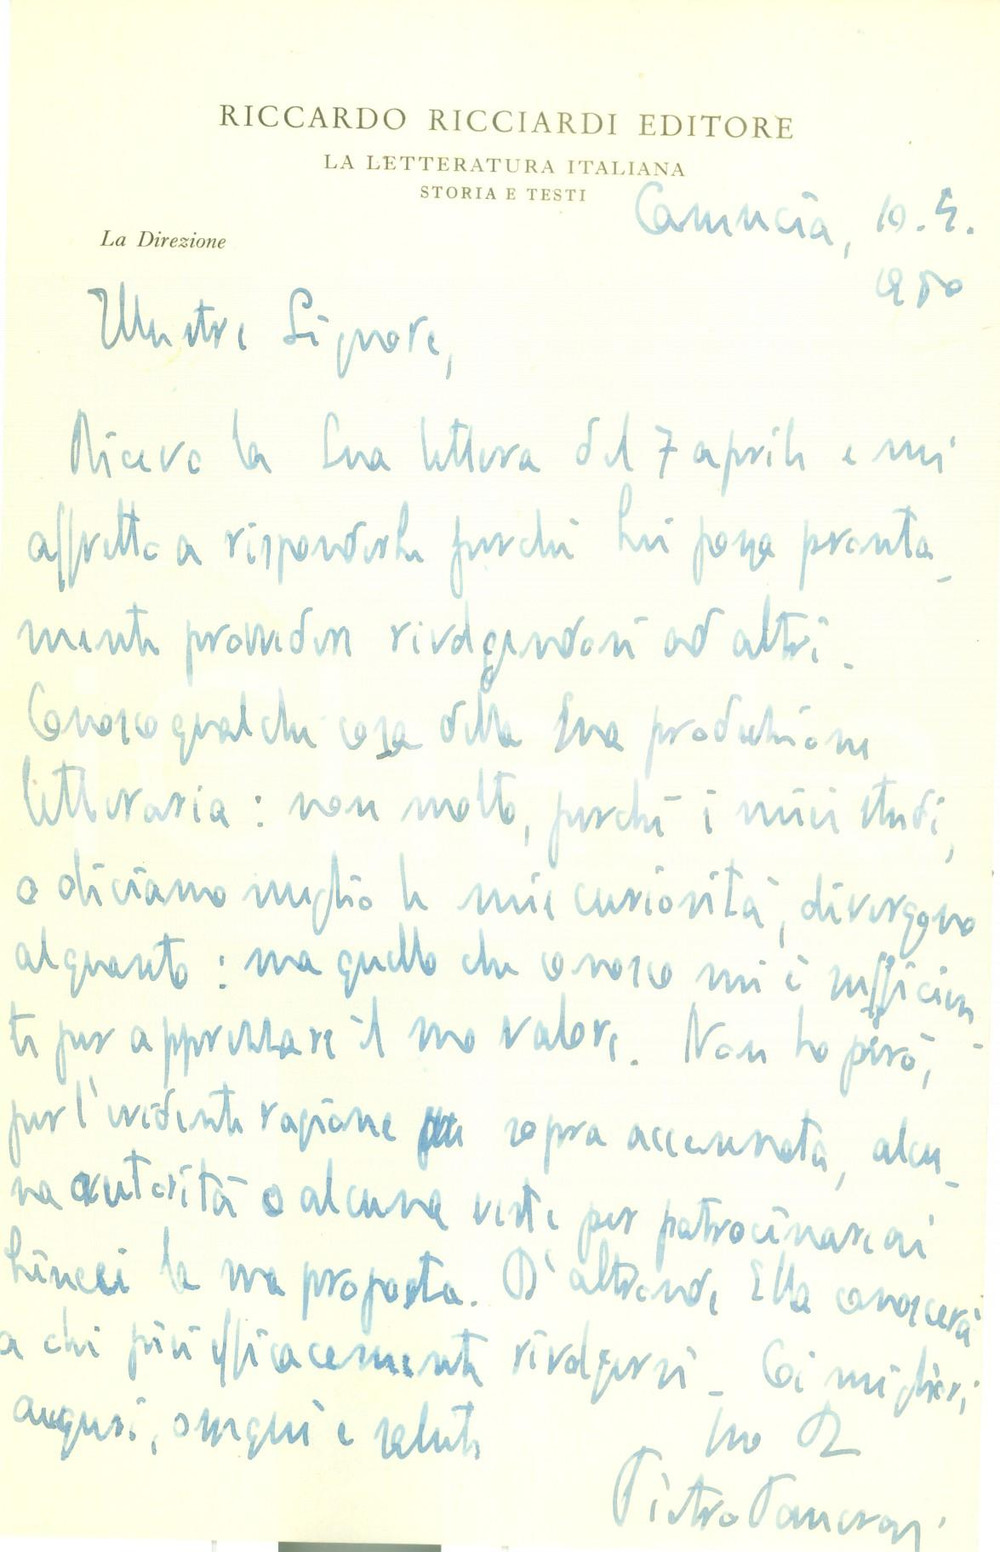 RICCARDO RICCIARDI EDITORE
LA LETTERATURA ITALIANA
STORIA E TESTI
La Direzione
Camucia, 10.4.
1950
Illustre Signore,
Ricevo la Sua lettera del 7 aprile e mi
affretto a risponderLe perché Lei possa pronta-
mente provvedere rivolgendosi ad altri.
Conosco qualche cosa della Sua produzione
letteraria: non molto, perché i miei studi,
o diciamo meglio le mie curiosità, divergono
alquanto: ma quello che conosco mi è sufficien-
te per apprezzare il suo valore. Non ho però,
per l'evidente ragione sopra accennata, alcu-
na autorità o alcuna veste per patrocinare ai
Lincei la sua proposta. D'altronde, Ella conoscerà
a chi più efficacemente rivolgersi. Coi migliori
auguri, ossequi e saluti
suo
Pietro Pancrazi